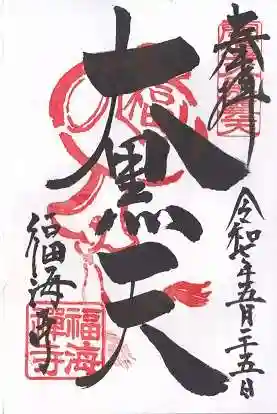 奉拝
令和七年五月二十五日
大黒天
福海寺
福海禅寺